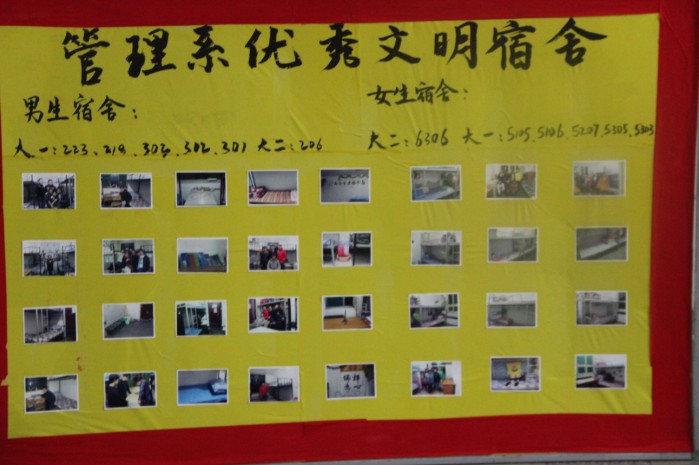 管理系优秀文明宿舍
男生宿舍：
女生宿舍：
大一：223、218、303、502、301 大二：206
大二：6306 大一：5105、5106、5207、5305、5303